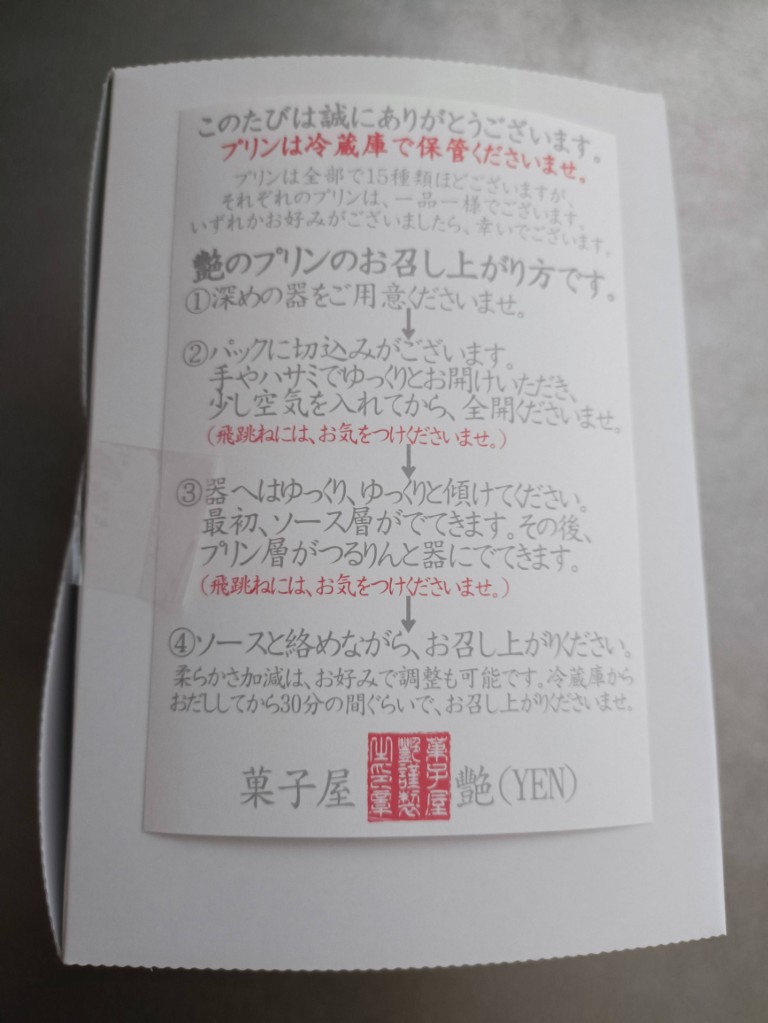 このたびは誠にありがとうございます。
プリンは冷蔵庫で保管くださいませ。
プリンは全部で15種類ほどございますが、
それぞれのプリンは、一品一様でございます。
いずれかお好みがございましたら、幸いでございます。
艶のプリンのお召し上がり方です。
①深めの器をご用意くださいませ。
↓
②パックに切込みがございます。
手やハサミでゆっくりとお開けいただき、
少し空気を入れてから、全開くださいませ。
(飛跳ねには、お気をつけくださいませ。)
↓
③器へはゆっくり、ゆっくりと傾けてください。
最初、ソース層がでてきます。その後、
プリン層がつるりんと器にでてきます。
(飛跳ねには、お気をつけくださいませ。)
↓
④ソースと絡めながら、お召し上がりください。
柔らかさ加減は、お好みで調整も可能です。冷蔵庫から
おだししてから30分の間ぐらいで、お召し上がりくださいませ。
菓子屋 艶(YEN)
菓子屋
艶謹製